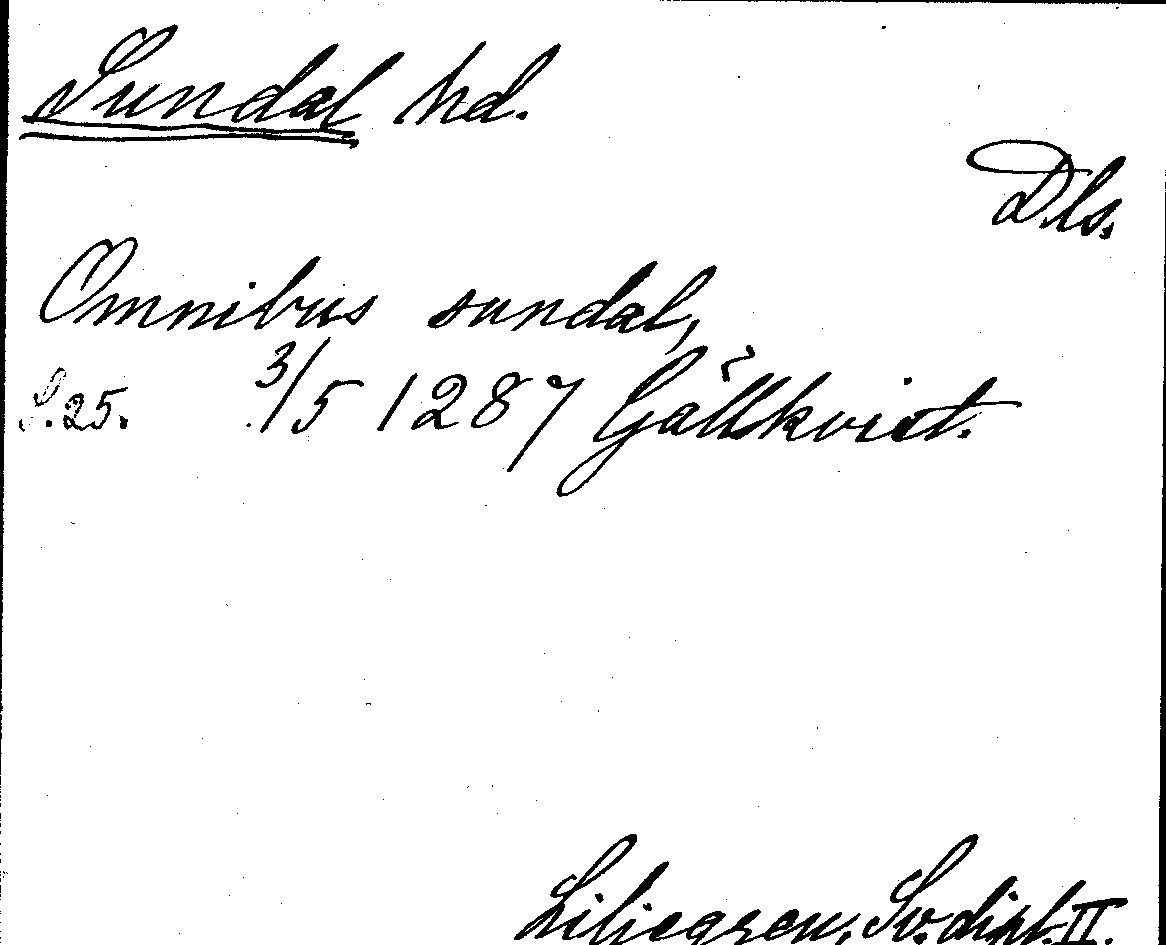 Sundal hd.
Dls.
Omnibus sundal,
S. 25. 3/5 1287 Gällkvist.
Liljegren, Sv. dipl. II.